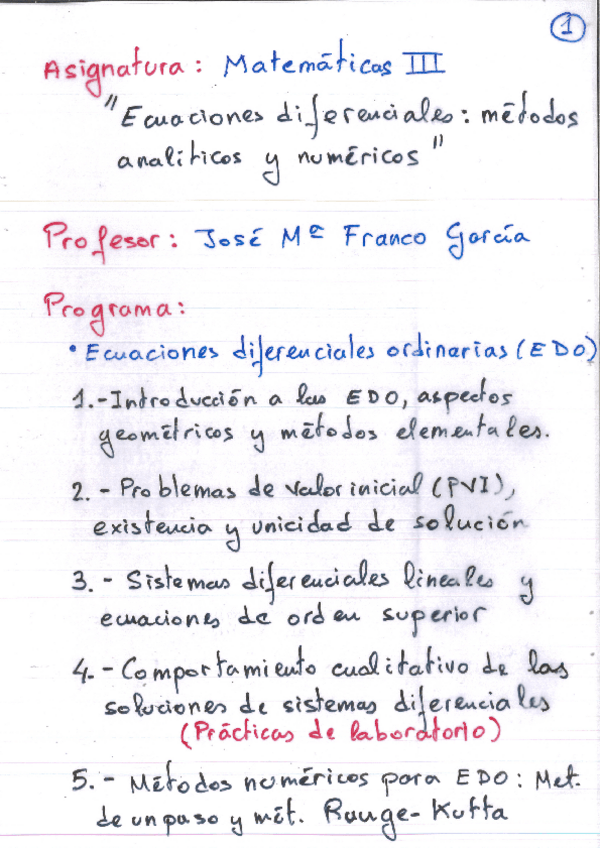 1
Asignatura: Matemáticas III
"Ecuaciones diferenciales: métodos
analíticos y numéricos"
Profesor: José Mª Franco García
Programa:
• Ecuaciones diferenciales ordinarias (EDO)
1.- Introducción a las EDO, aspectos
geométricos y métodos elementales.
2.- Problemas de valor inicial (PVI),
existencia y unicidad de solución
3.- Sistemas diferenciales lineales y
ecuaciones de orden superior
4.- Comportamiento cualitativo de las
soluciones de sistemas diferenciales
(Prácticas de laboratorio)
5.- Métodos numéricos para EDO: Met.
de un paso y mét. Runge-Kutta